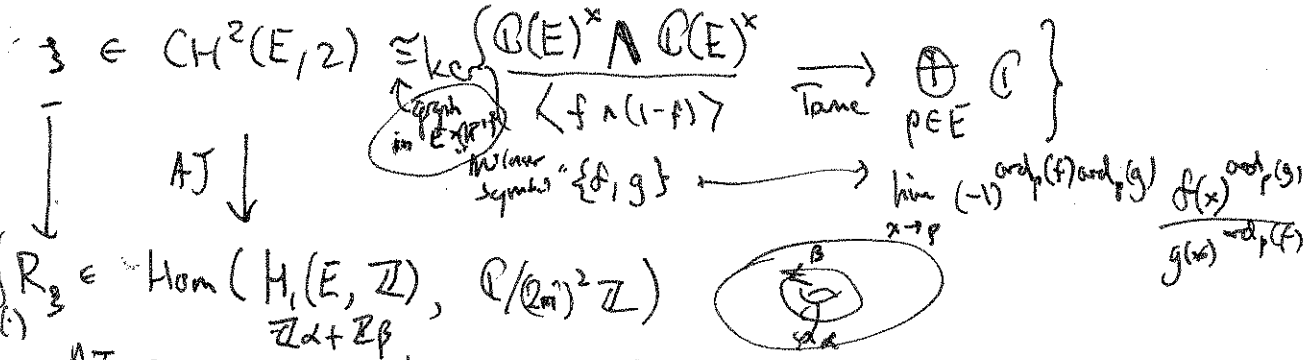 ξ ∈ CH²(E,2) ≅ ker { ℂ(E)^× ∧ ℂ(E)^× / ⟨f ∧ (1-f)⟩ → Tame ⊕_{p∈E} ℂ }
graph
in
AJ ↓ symbol {f, g} ↦ lim_{x→p} (-1)^{ord_p(f) ord_p(g)} f(x)^{ord_p(g)} / g(x)^{ord_p(f)}
R_ξ ∈ Hom(H₁(E, ℤ), ℂ/(2πi)²ℤ) β
ℤα + ℤβ α
AJ